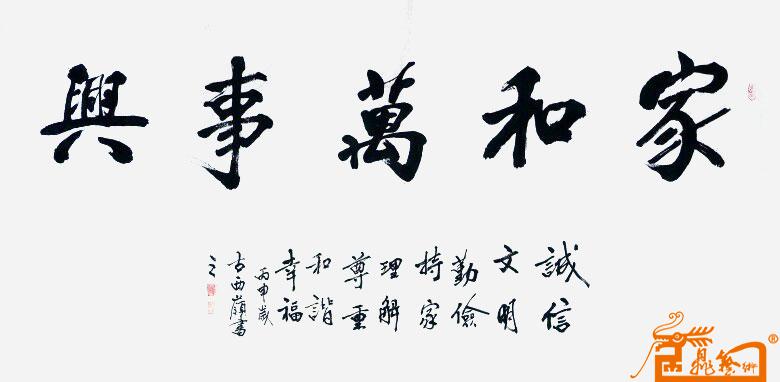 家和萬事興
誠信
文明
勤儉
持家
理解
尊重
和諧
幸福
丙申歲
古西嶺書
之